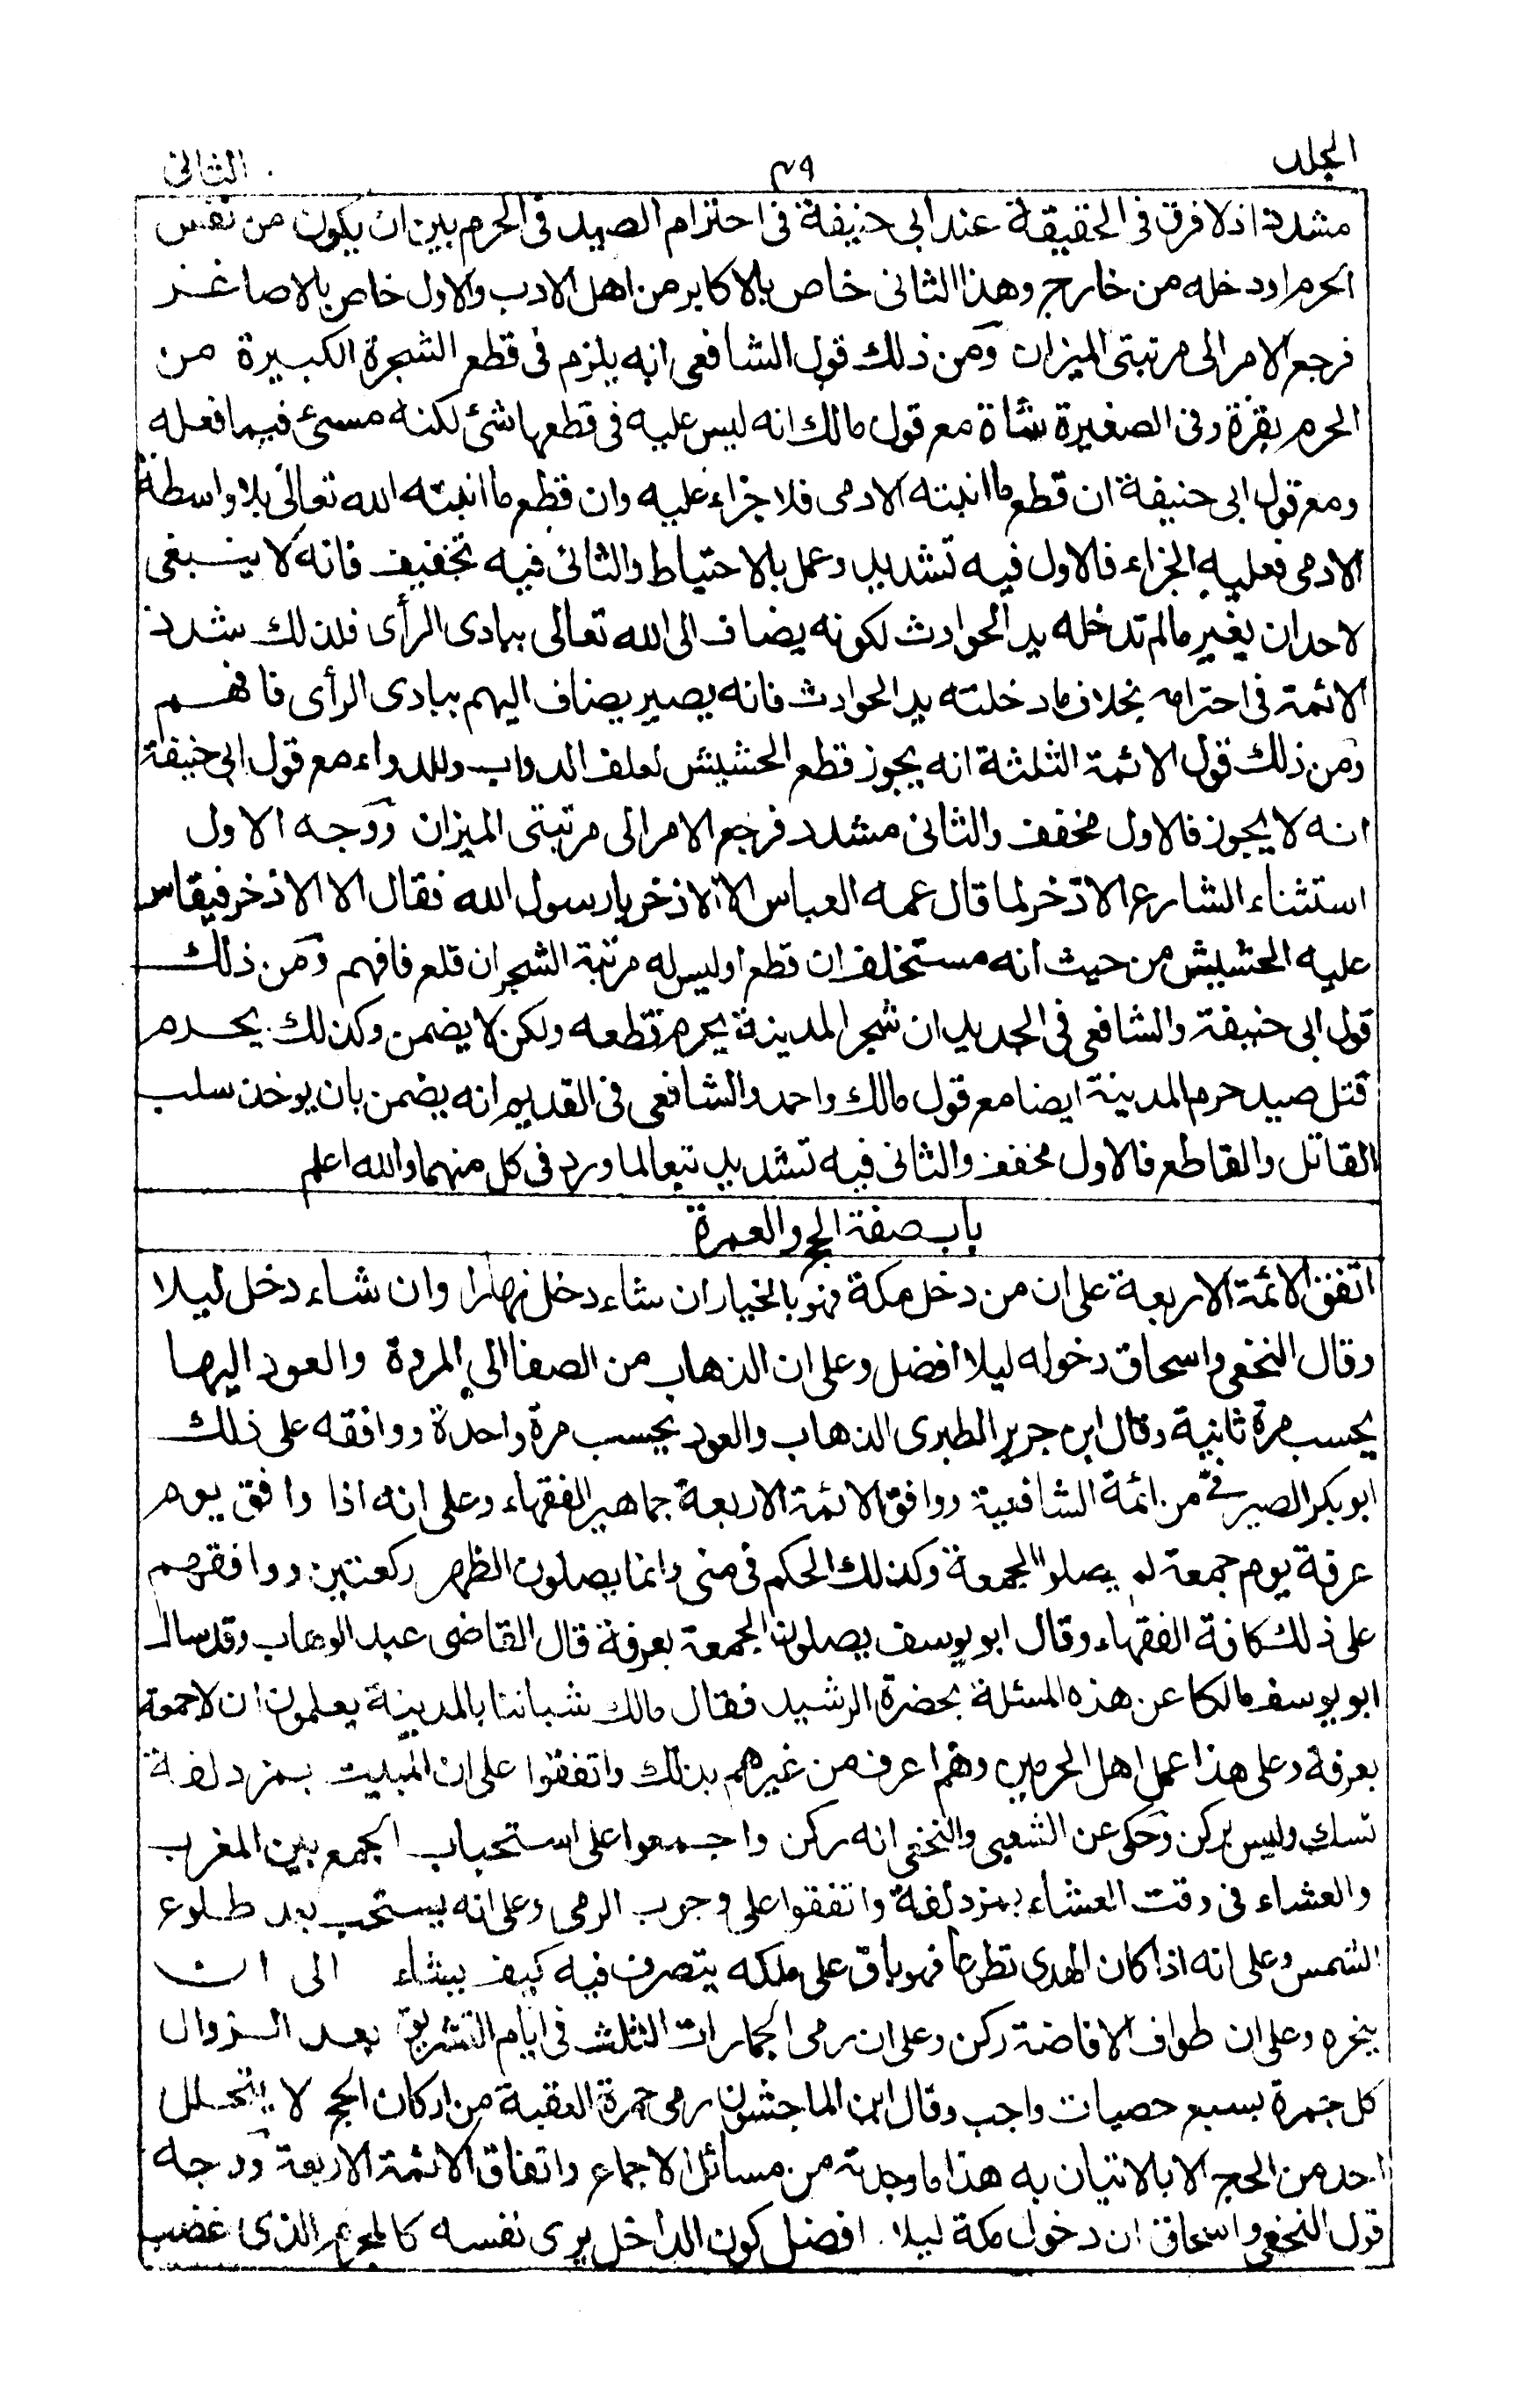 المجلد ٤٩ الثانى
مشددة اذ لا فرق فى الحقيقة عند ابى حنيفة فى احترام الصيد فى الحرم بين ان يكون من نفس
الحرم او دخله من خارج وهذا الثانى خاص بالاكابر من اهل الادب والاول خاص بالاصاغر
فرجع الامر الى مرتبتى الميزان ومن ذلك قول الشافعى انه يلزم فى قطع الشجرة الكبيرة من
الحرم بقرة وفى الصغيرة شاة مع قول مالك انه ليس عليه فى قطعها شئ لكنه مسئ فيما فعله
ومع قول ابى حنيفة ان قطع ما انبته الادمى فلا جزاء عليه وان قطع ما انبته الله تعالى بلا واسطة
الادمى فعليه الجزاء فالاول فيه تشديد وعمل بالاحتياط والثانى فيه تخفيف فانه لا ينبغى
لاحد ان يغير ما لم تدخله يد الحوادث لكونه يضاف الى الله تعالى ببادى الرأى فلذلك شدد
الائمة فى احترامه بخلاف ما دخلته يد الحوادث فانه يصير يضاف اليهم ببادى الرأى فافهم
ومن ذلك قول الائمة الثلثة انه يجوز قطع الحشيش لعلف الدواب وللدواء مع قول ابى حنيفة
انه لا يجوز فالاول مخفف والثانى مشدد فرجع الامر الى مرتبتى الميزان ووجه الاول
استثناء الشارع الاذخر لما قال عمه العباس الا الاذخر يا رسول الله فقال الا الاذخر فيقاس
عليه الحشيش من حيث انه مستخلف ان قطع او ليس له مرتبة الشجر ان قلع فافهم ومن ذلك
قول ابى حنيفة والشافعى فى الجديد ان شجر المدينة يحرم قطعه ولكن لا يضمن وكذلك يحرم
قتل صيد حرم المدينة ايضا مع قول مالك واحمد والشافعى فى القديم انه يضمن بان يوخذ سلب
القاتل والقاطع فالاول مخفف والثانى فيه تشديد تبعا لما ورد فى كل منهما والله اعلم
باب صفة الحج والعمرة
اتفق الائمة الاربعة على ان من دخل مكة فهو بالخيار ان شاء دخل نهارا وان شاء دخل ليلا
وقال النخعى واسحاق دخوله ليلا افضل وعلى ان الذهاب من الصفا الى المروة والعود اليها
يحسب مرة ثانية وقال ابن جرير الطبرى الذهاب والعود يحسب مرة واحدة ووافقه على ذلك
ابو بكر الصيرفى من ائمة الشافعية ووافق الائمة الاربعة جماهير الفقهاء وعلى انه اذا وافق يوم
عرفة يوم جمعة لم يصلوا الجمعة وكذلك الحكم فى منى وانما يصلون الظهر ركعتين ووافقهم
على ذلك كافة الفقهاء وقال ابو يوسف يصلون الجمعة بعرفة قال القاضى عبد الوهاب وقد سال
ابو يوسف مالكا عن هذه المسئلة بحضرة الرشيد فقال مالك شباننا بالمدينة يعلمون ان لا جمعة
بعرفة وعلى هذا عمل اهل الحرمين وهم اعرف من غيرهم بذلك واتفقوا على ان المبيت بمزدلفة
نسك وليس بركن وحكى عن الشعبى والنخعى انه ركن واجمعوا على استحباب الجمع بين المغرب
والعشاء فى وقت العشاء بمزدلفة واتفقوا على وجوب الرمى وعلى انه يستحب بعد طلوع
الشمس وعلى انه اذا كان الهدى تطوعا فهو باق على ملكه يتصرف فيه كيف يشاء الى ان
ينحره وعلى ان طواف الافاضة ركن وعلى ان رمى الجمارات الثلث فى ايام التشريق بعد الزوال
كل جمرة بسبع حصيات واجب وقال ابن الماجشون رمى جمرة العقبة من اركان الحج لا يتحلل
احد من الحج الا بالاتيان به هذا ما وجدته من مسائل الاجماع واتفاق الائمة الاربعة ووجه
قول النخعى واسحاق ان دخول مكة ليلا افضل كون الداخل يرى نفسه كالمجرم الذى غضب